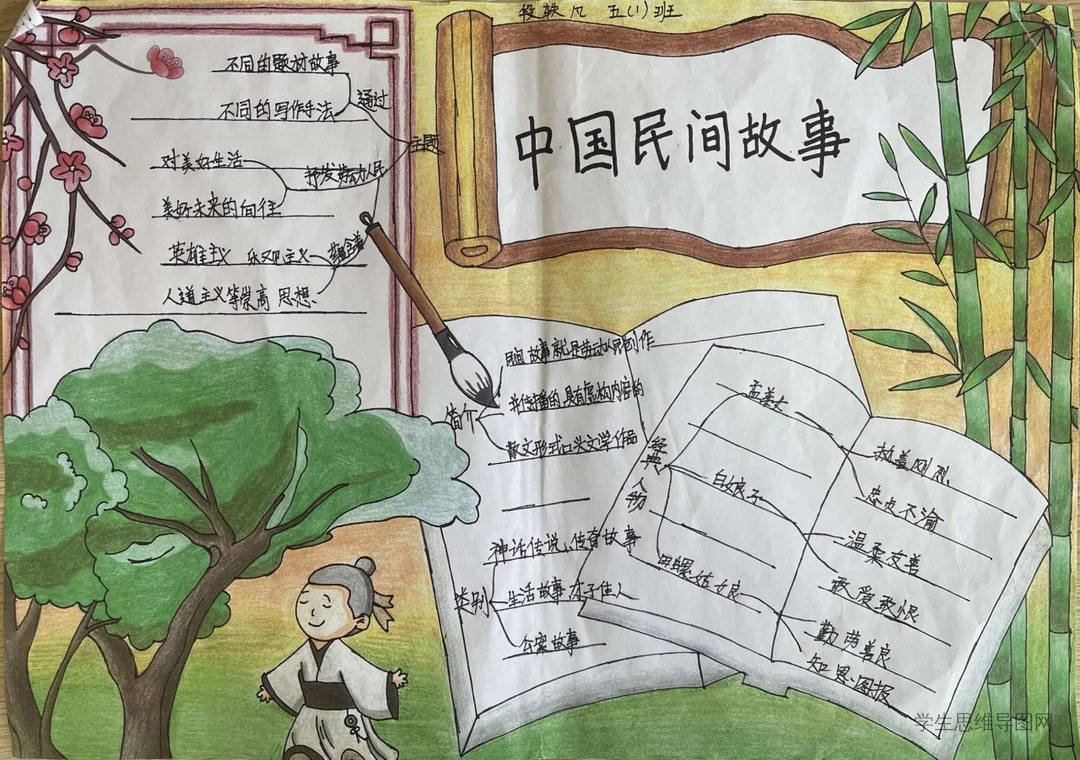 五(1)班
中国民间故事
主题
通过
不同的题材故事
不同的写作手法
抒发劳动人民
对美好生活
美好未来的向往
蕴含着
英雄主义 乐观主义
人道主义等崇高思想
简介
民间故事就是劳动人民创作
并传播的,具有虚构内容的
散文形式口头文学作品
类别
神话传说、传奇故事
生活故事 才子佳人
公案故事
经典人物
孟姜女
善良刚烈
忠贞不渝
白娘子
温柔友善
敢爱敢恨
田螺姑娘
勤劳善良
知恩图报
学生思维导图网